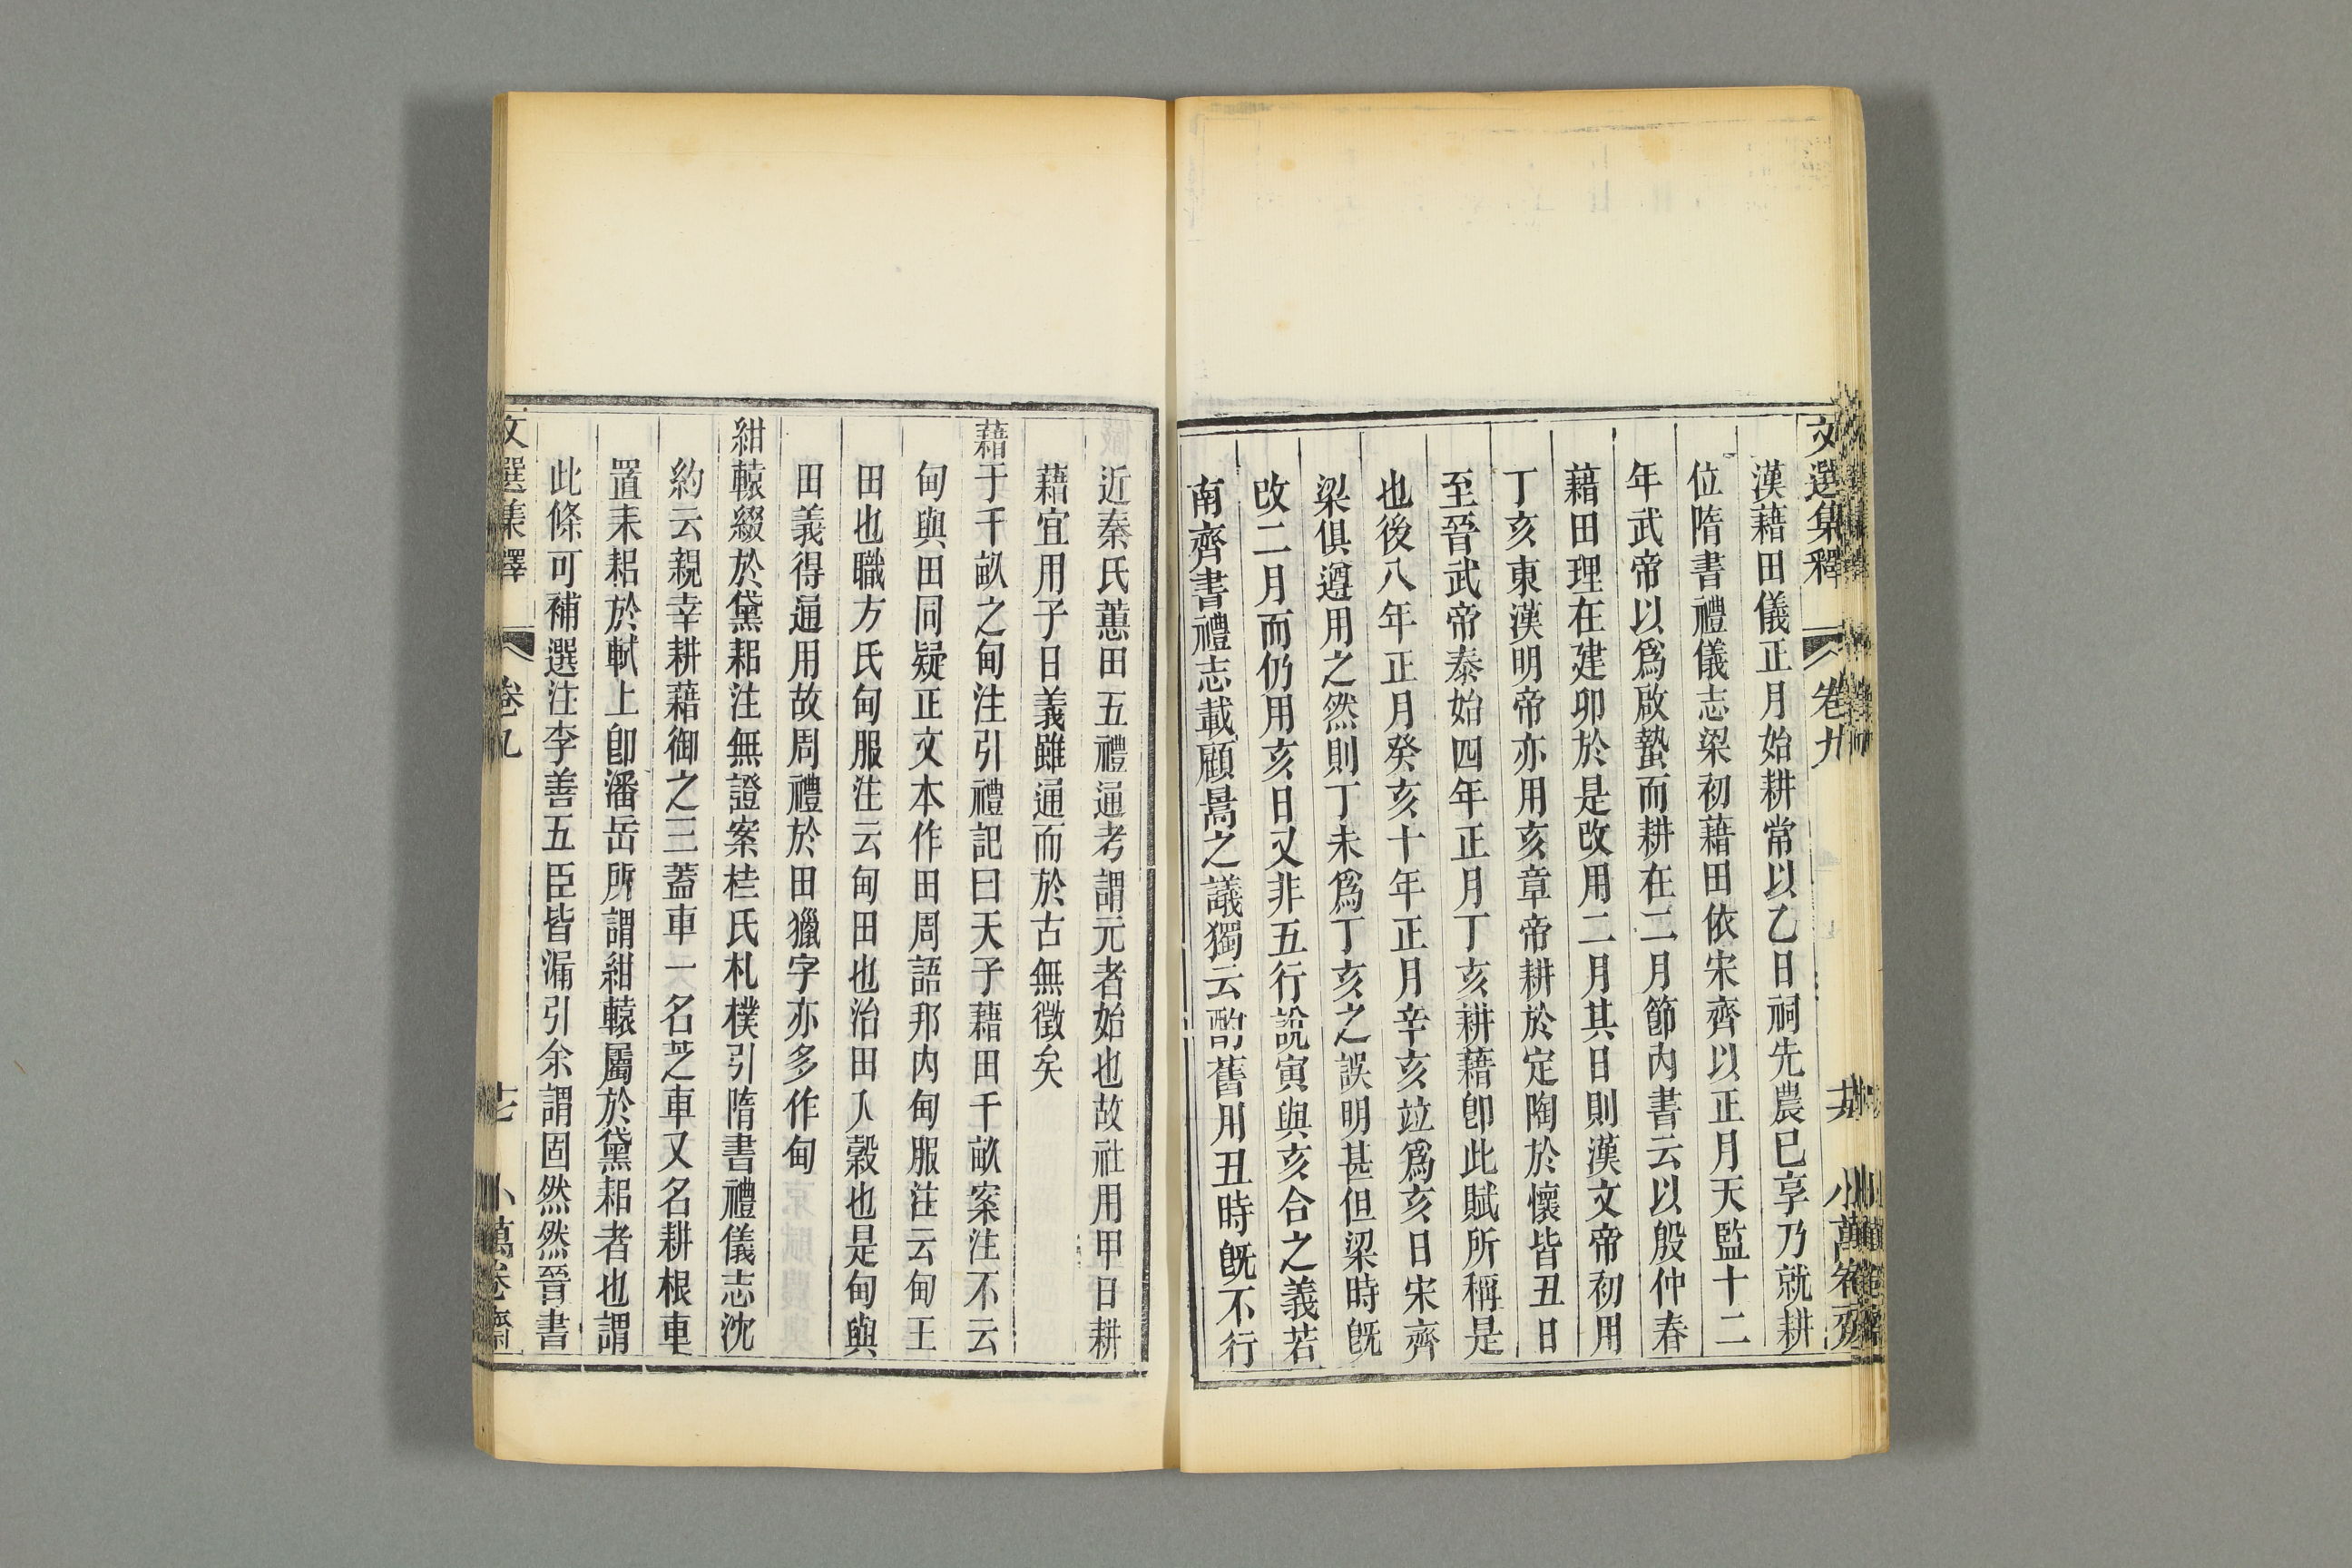 文選集釋 卷九 小萬卷齋
漢藉田儀正月始耕常以乙日祠先農已享乃就耕
位隋書禮儀志梁初藉田依宋齊以正月天監十二
年武帝以爲啟蟄而耕在二月節內書云以殷仲春
藉田理在建卯於是改用二月其日則漢文帝初用
丁亥東漢明帝亦用亥章帝耕於定陶於懷皆丑日
至晉武帝泰始四年正月丁亥耕藉卽此賦所稱是
也後八年正月癸亥十年正月辛亥竝爲亥日宋齊
梁俱遵用之然則丁未爲丁亥之誤明甚但梁時旣
改二月而仍用亥日又非五行說寅與亥合之義若
南齊書禮志載顧暠之議獨云酌舊用丑時旣不行
近秦氏蕙田五禮通考謂元者始也故社用甲日耕
藉宜用子日義雖通而於古無徵矣
藉于千畝之甸注引禮記曰天子藉田千畝案注不云
甸與田同疑正文本作田周語邦內甸服注云甸王
田也職方氏甸服注云甸田也治田入穀也是甸與
田義得通用故周禮於田獵字亦多作甸
紺轅綴於黛耜注無證案桂氏札樸引隋書禮儀志沈
約云親幸耕藉御之三蓋車一名芝車又名耕根車
置耒耜於軾上卽潘岳所謂紺轅屬於黛耜者也謂
此條可補選注李善五臣皆漏引余謂固然然晉書
文選集釋 卷九 七 小萬卷齋